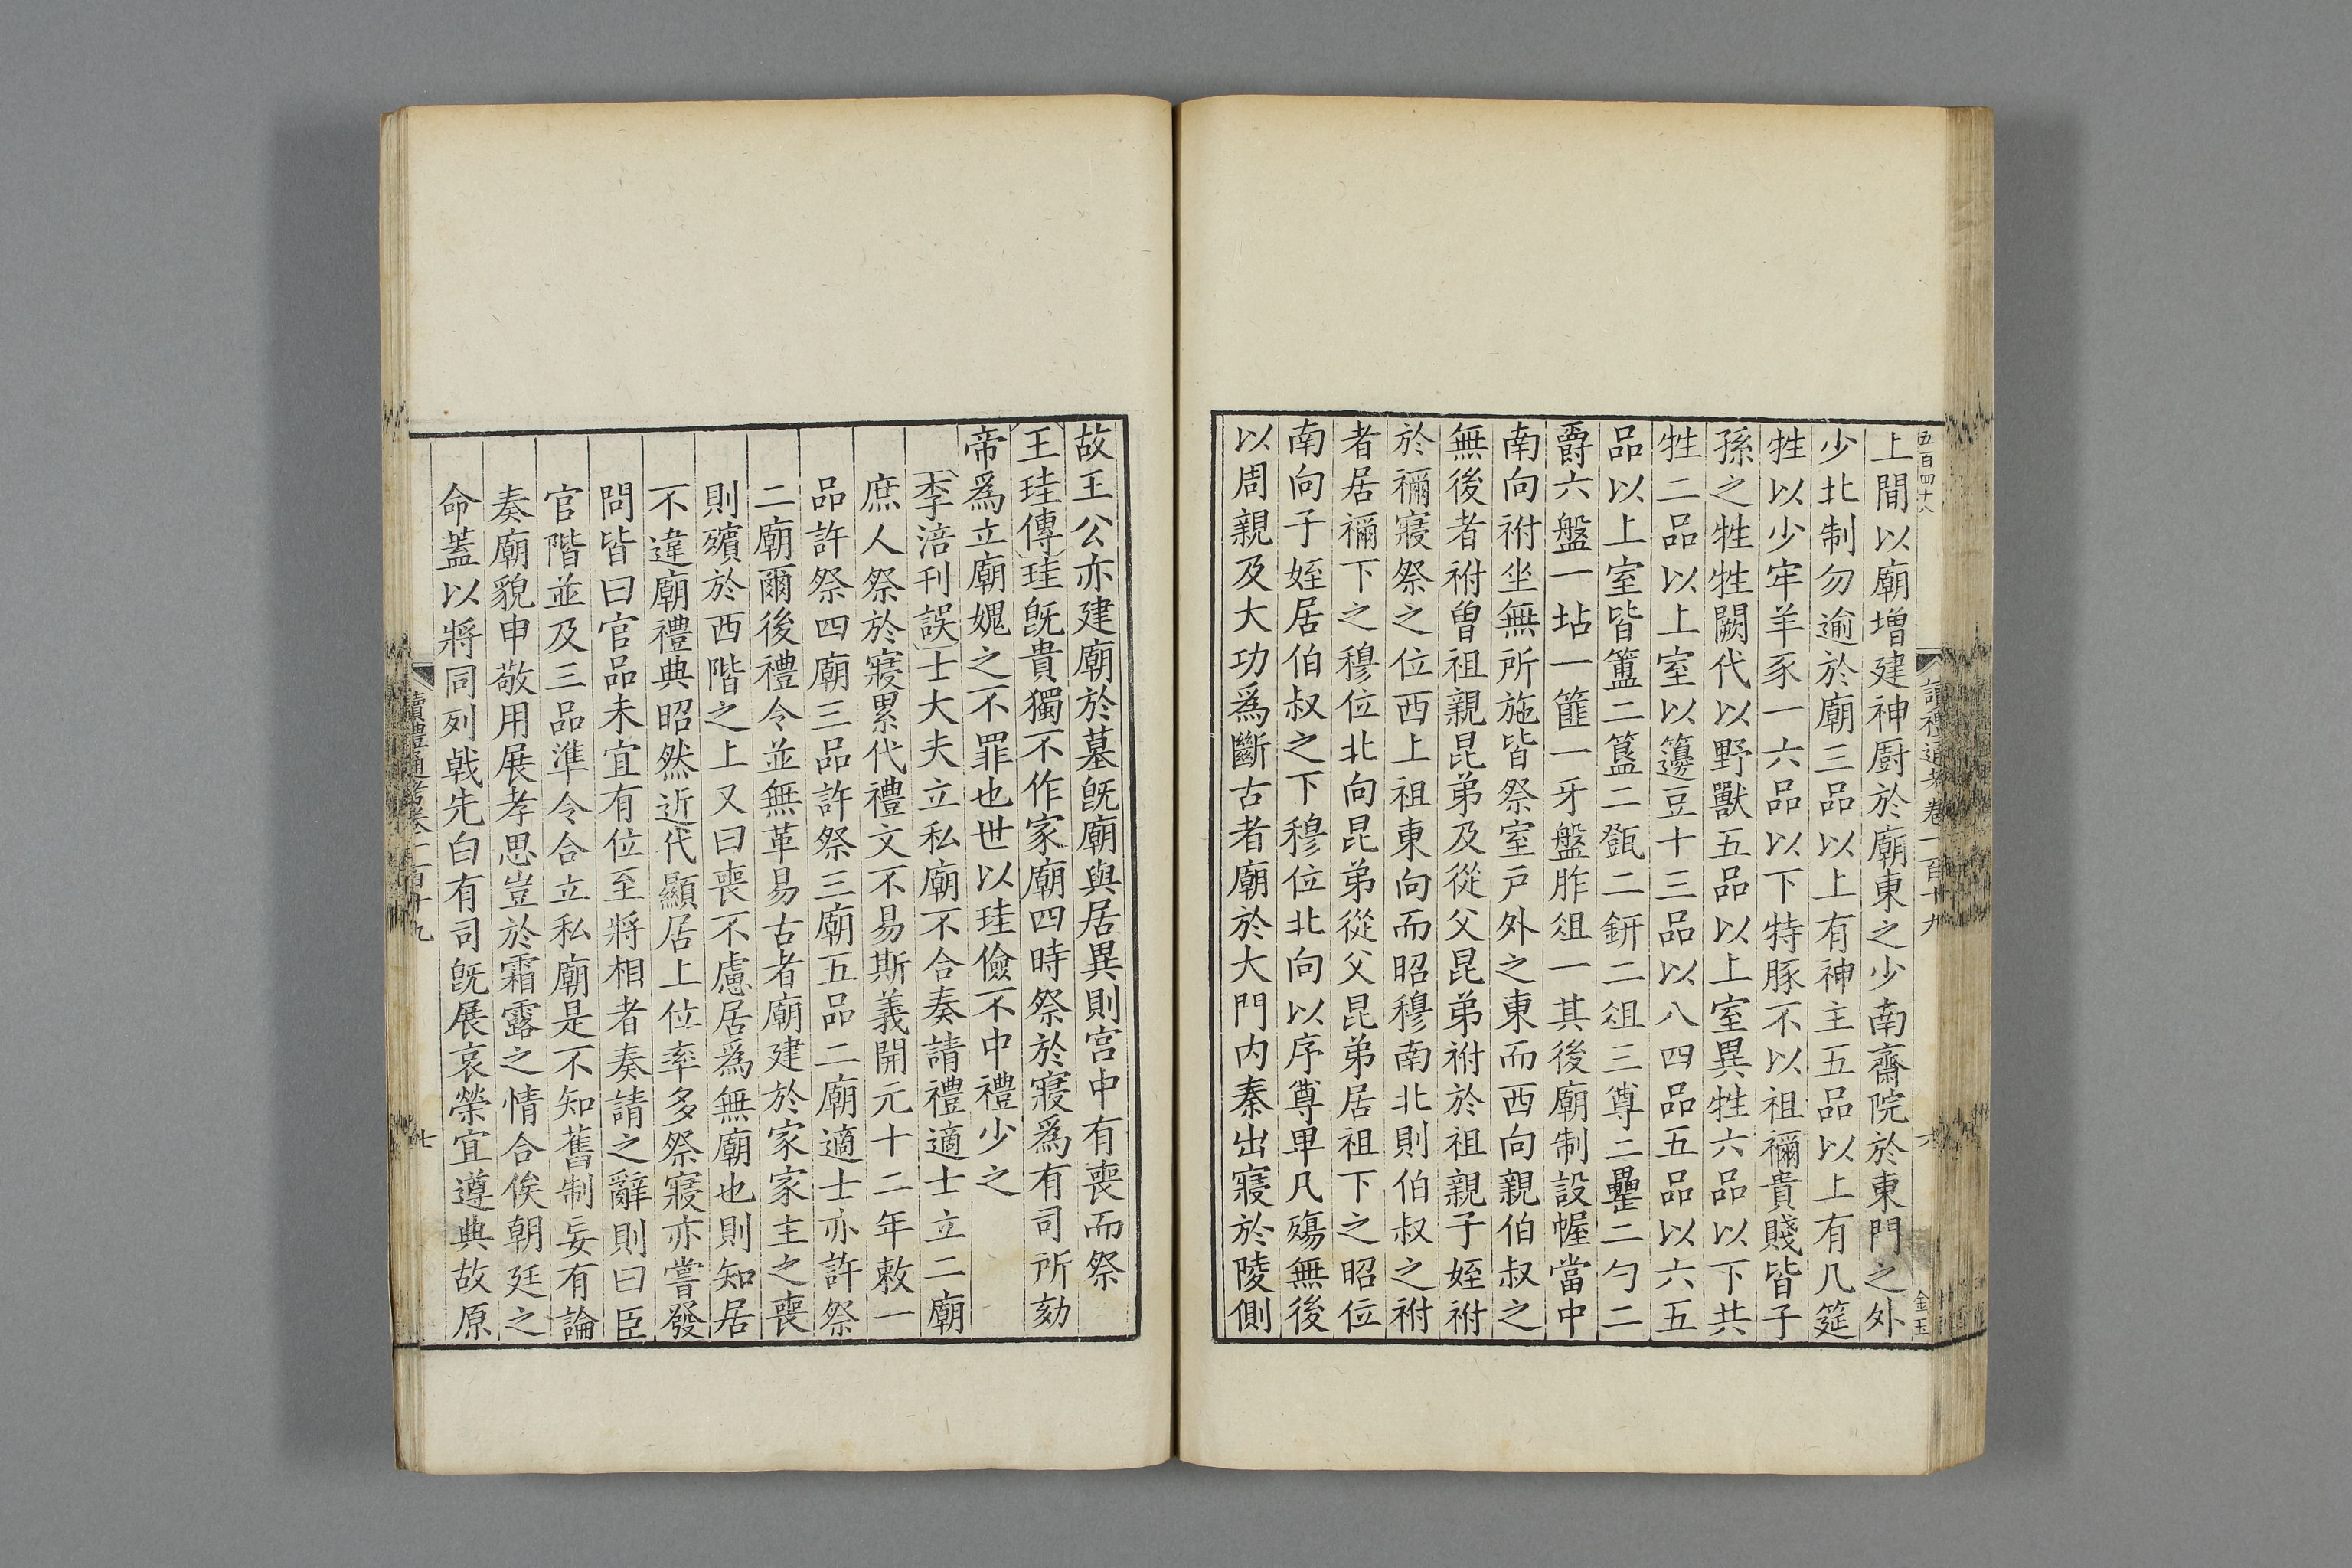 五百四十八
讀禮通考卷一百十九
六
金玉
上閒以廟增建神厨於廟東之少南齋院於東門之外
少北制勿逾於廟三品以上有神主五品以上有几筵
牲以少牢羊豕一六品以下特豚不以祖禰貴賤皆子
孫之牲牲闕代以野獸五品以上室異牲六品以下共
牲二品以上室以籩豆十三品以八四品五品以六五
品以上室皆簠二簋二㽅二鈃二俎三尊二罍二勺二
爵六盤一坫一篚一牙盤胙俎一其後廟制設幄當中
南向祔坐無所施皆祭室戸外之東而西向親伯叔之
無後者祔曾祖親昆弟及從父昆弟祔於祖親子姪祔
於禰寢祭之位西上祖東向而昭穆南北則伯叔之祔
者居禰下之穆位北向昆弟從父昆弟居祖下之昭位
南向子姪居伯叔之下穆位北向以序尊𤰞凡殤無後
以周親及大功爲斷古者廟於大門内秦出寢於陵側
故王公亦建廟於墓旣廟與居異則宫中有喪而祭
王珪傳珪旣貴獨不作家廟四時祭於寢爲有司所劾
帝爲立廟媿之不罪也世以珪儉不中禮少之
李涪刊誤士大夫立私廟不合奏請禮適士立二廟
庶人祭於寢累代禮文不易斯義開元十二年敕一
品許祭四廟三品許祭三廟五品二廟適士亦許祭
二廟爾後禮令並無革易古者廟建於家家主之喪
則殯於西階之上又曰喪不慮居爲無廟也則知居
不違廟禮典昭然近代顯居上位率多祭寢亦嘗發
問皆曰官品未宜有位至將相者奏請之辭則曰臣
官階並及三品準令合立私廟是不知舊制妄有論
奏廟貌申敬用展孝思豈於霜露之情合俟朝廷之
命蓋以將同列戟先白有司旣展哀榮宜遵典故原
讀禮通考卷一百十九
七